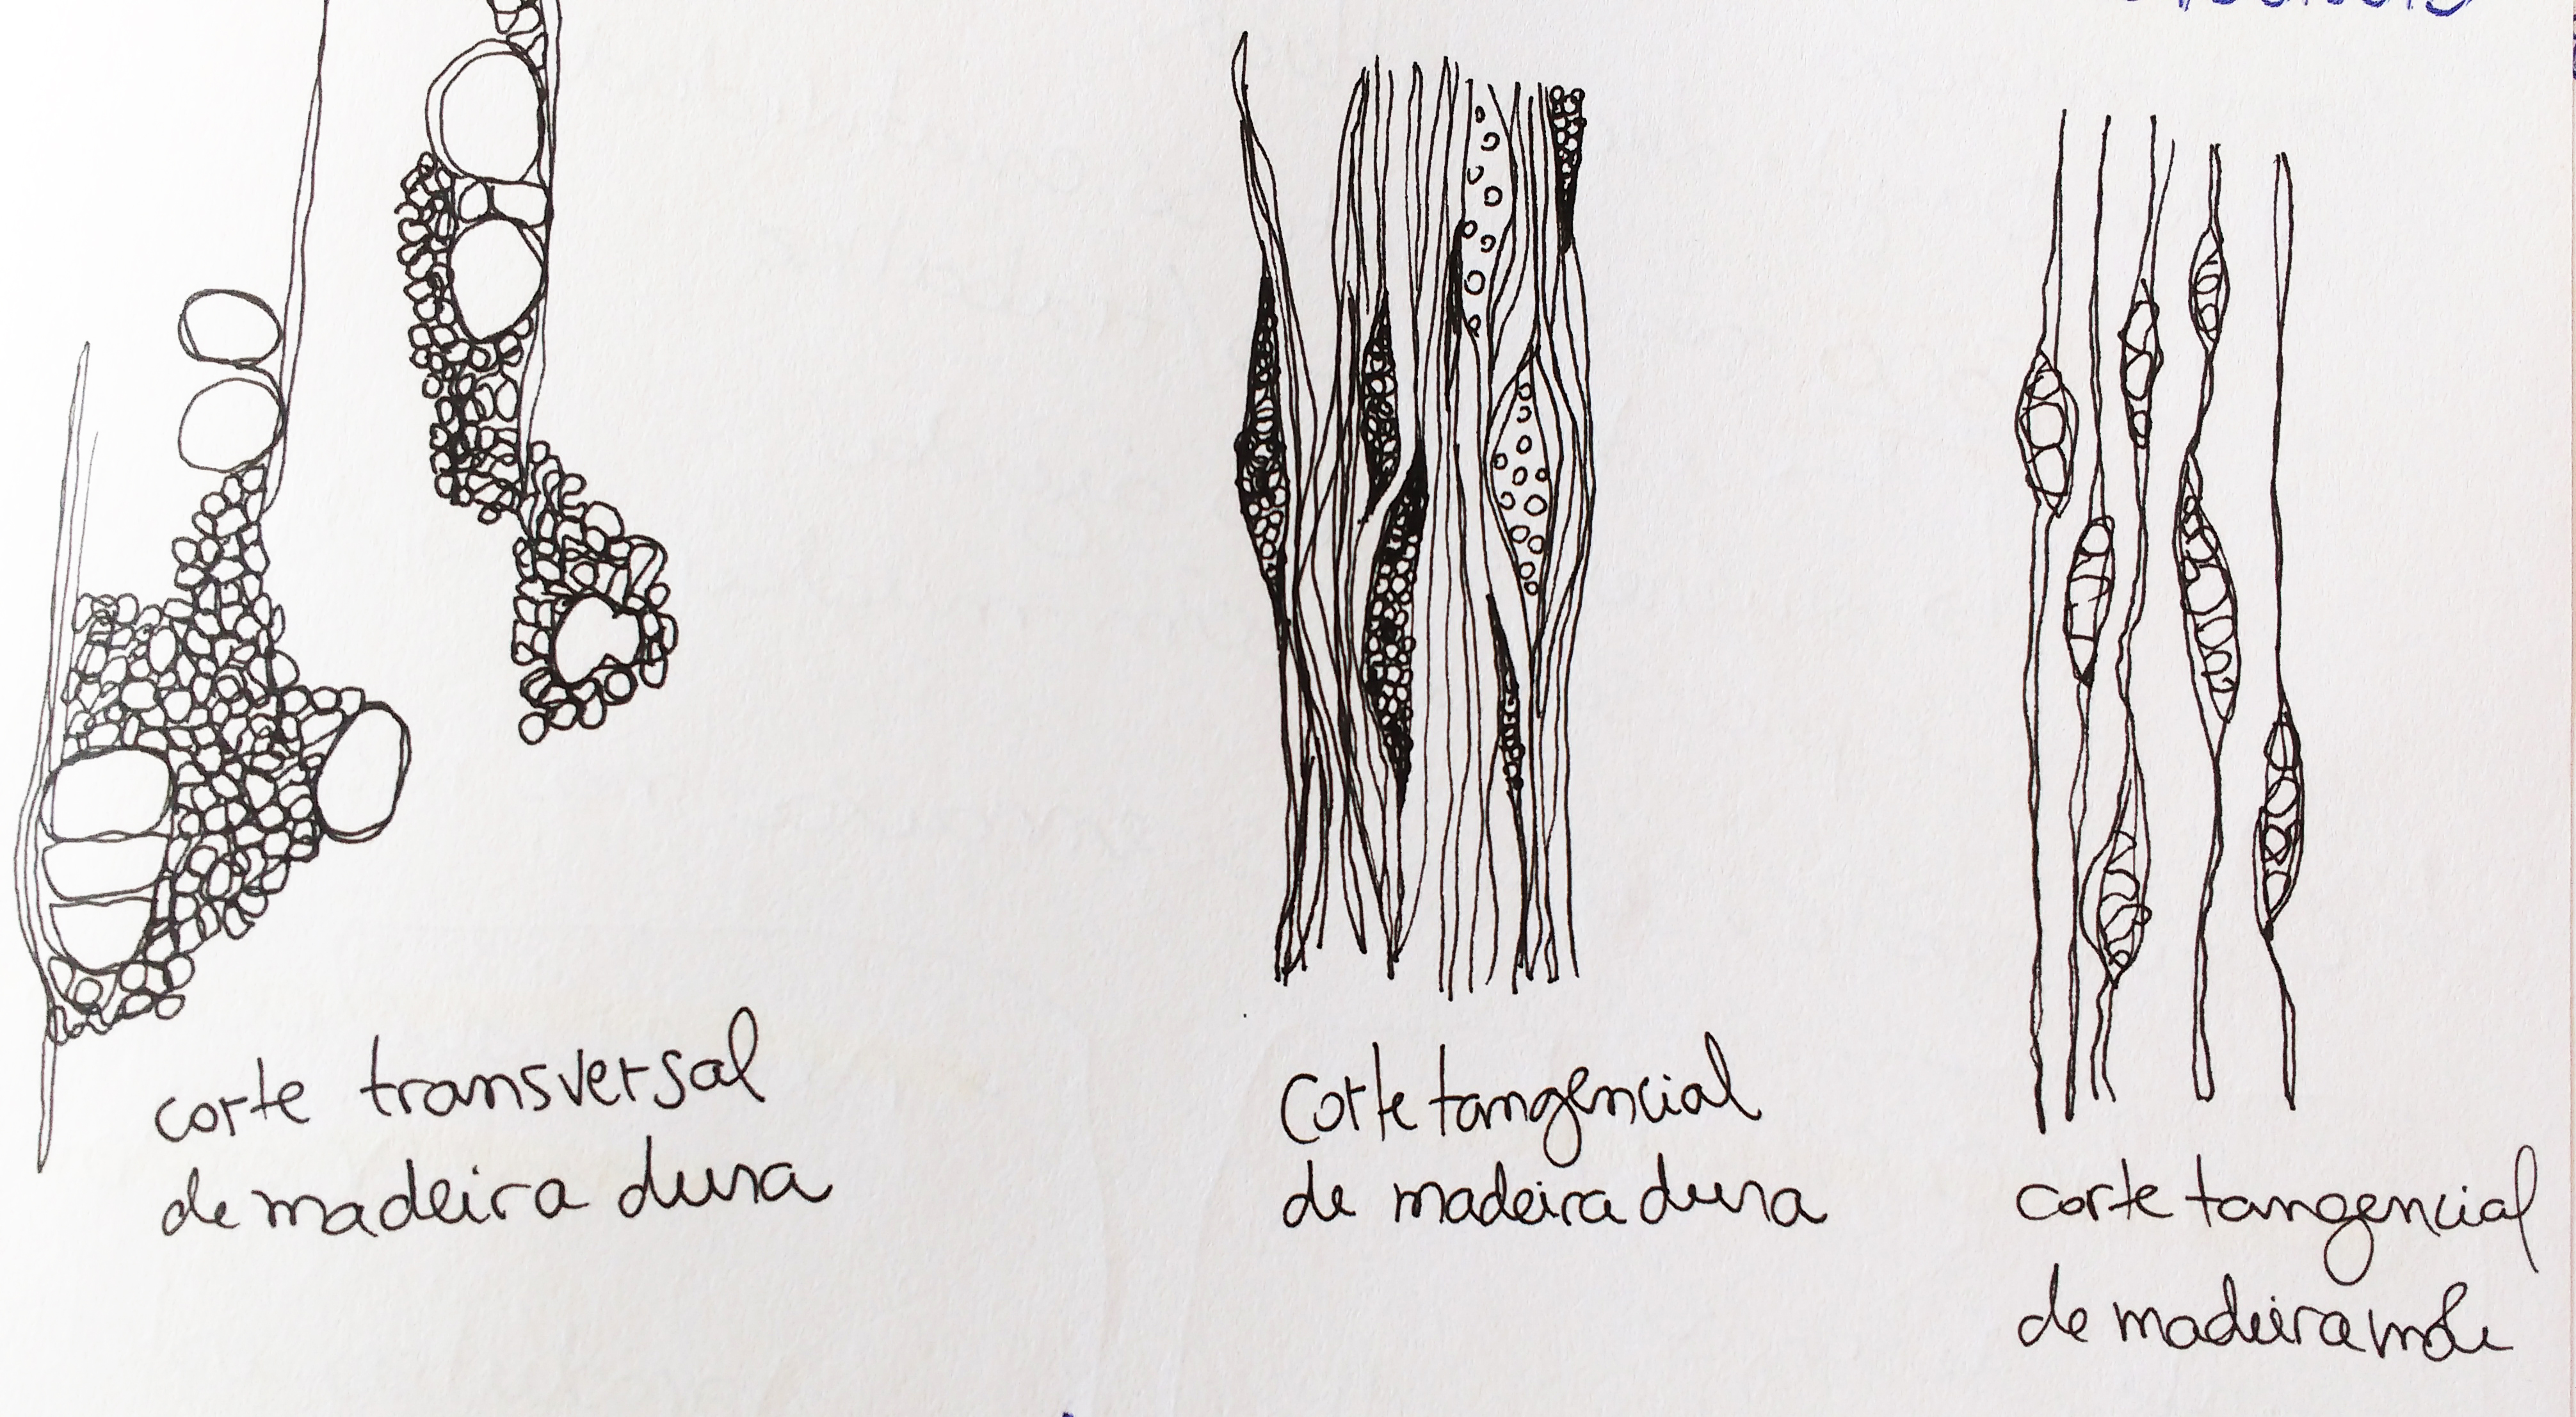 corte transversal
de madeira dura
Corte tangencial
de madeira dura
corte tangencial
de madeira mole